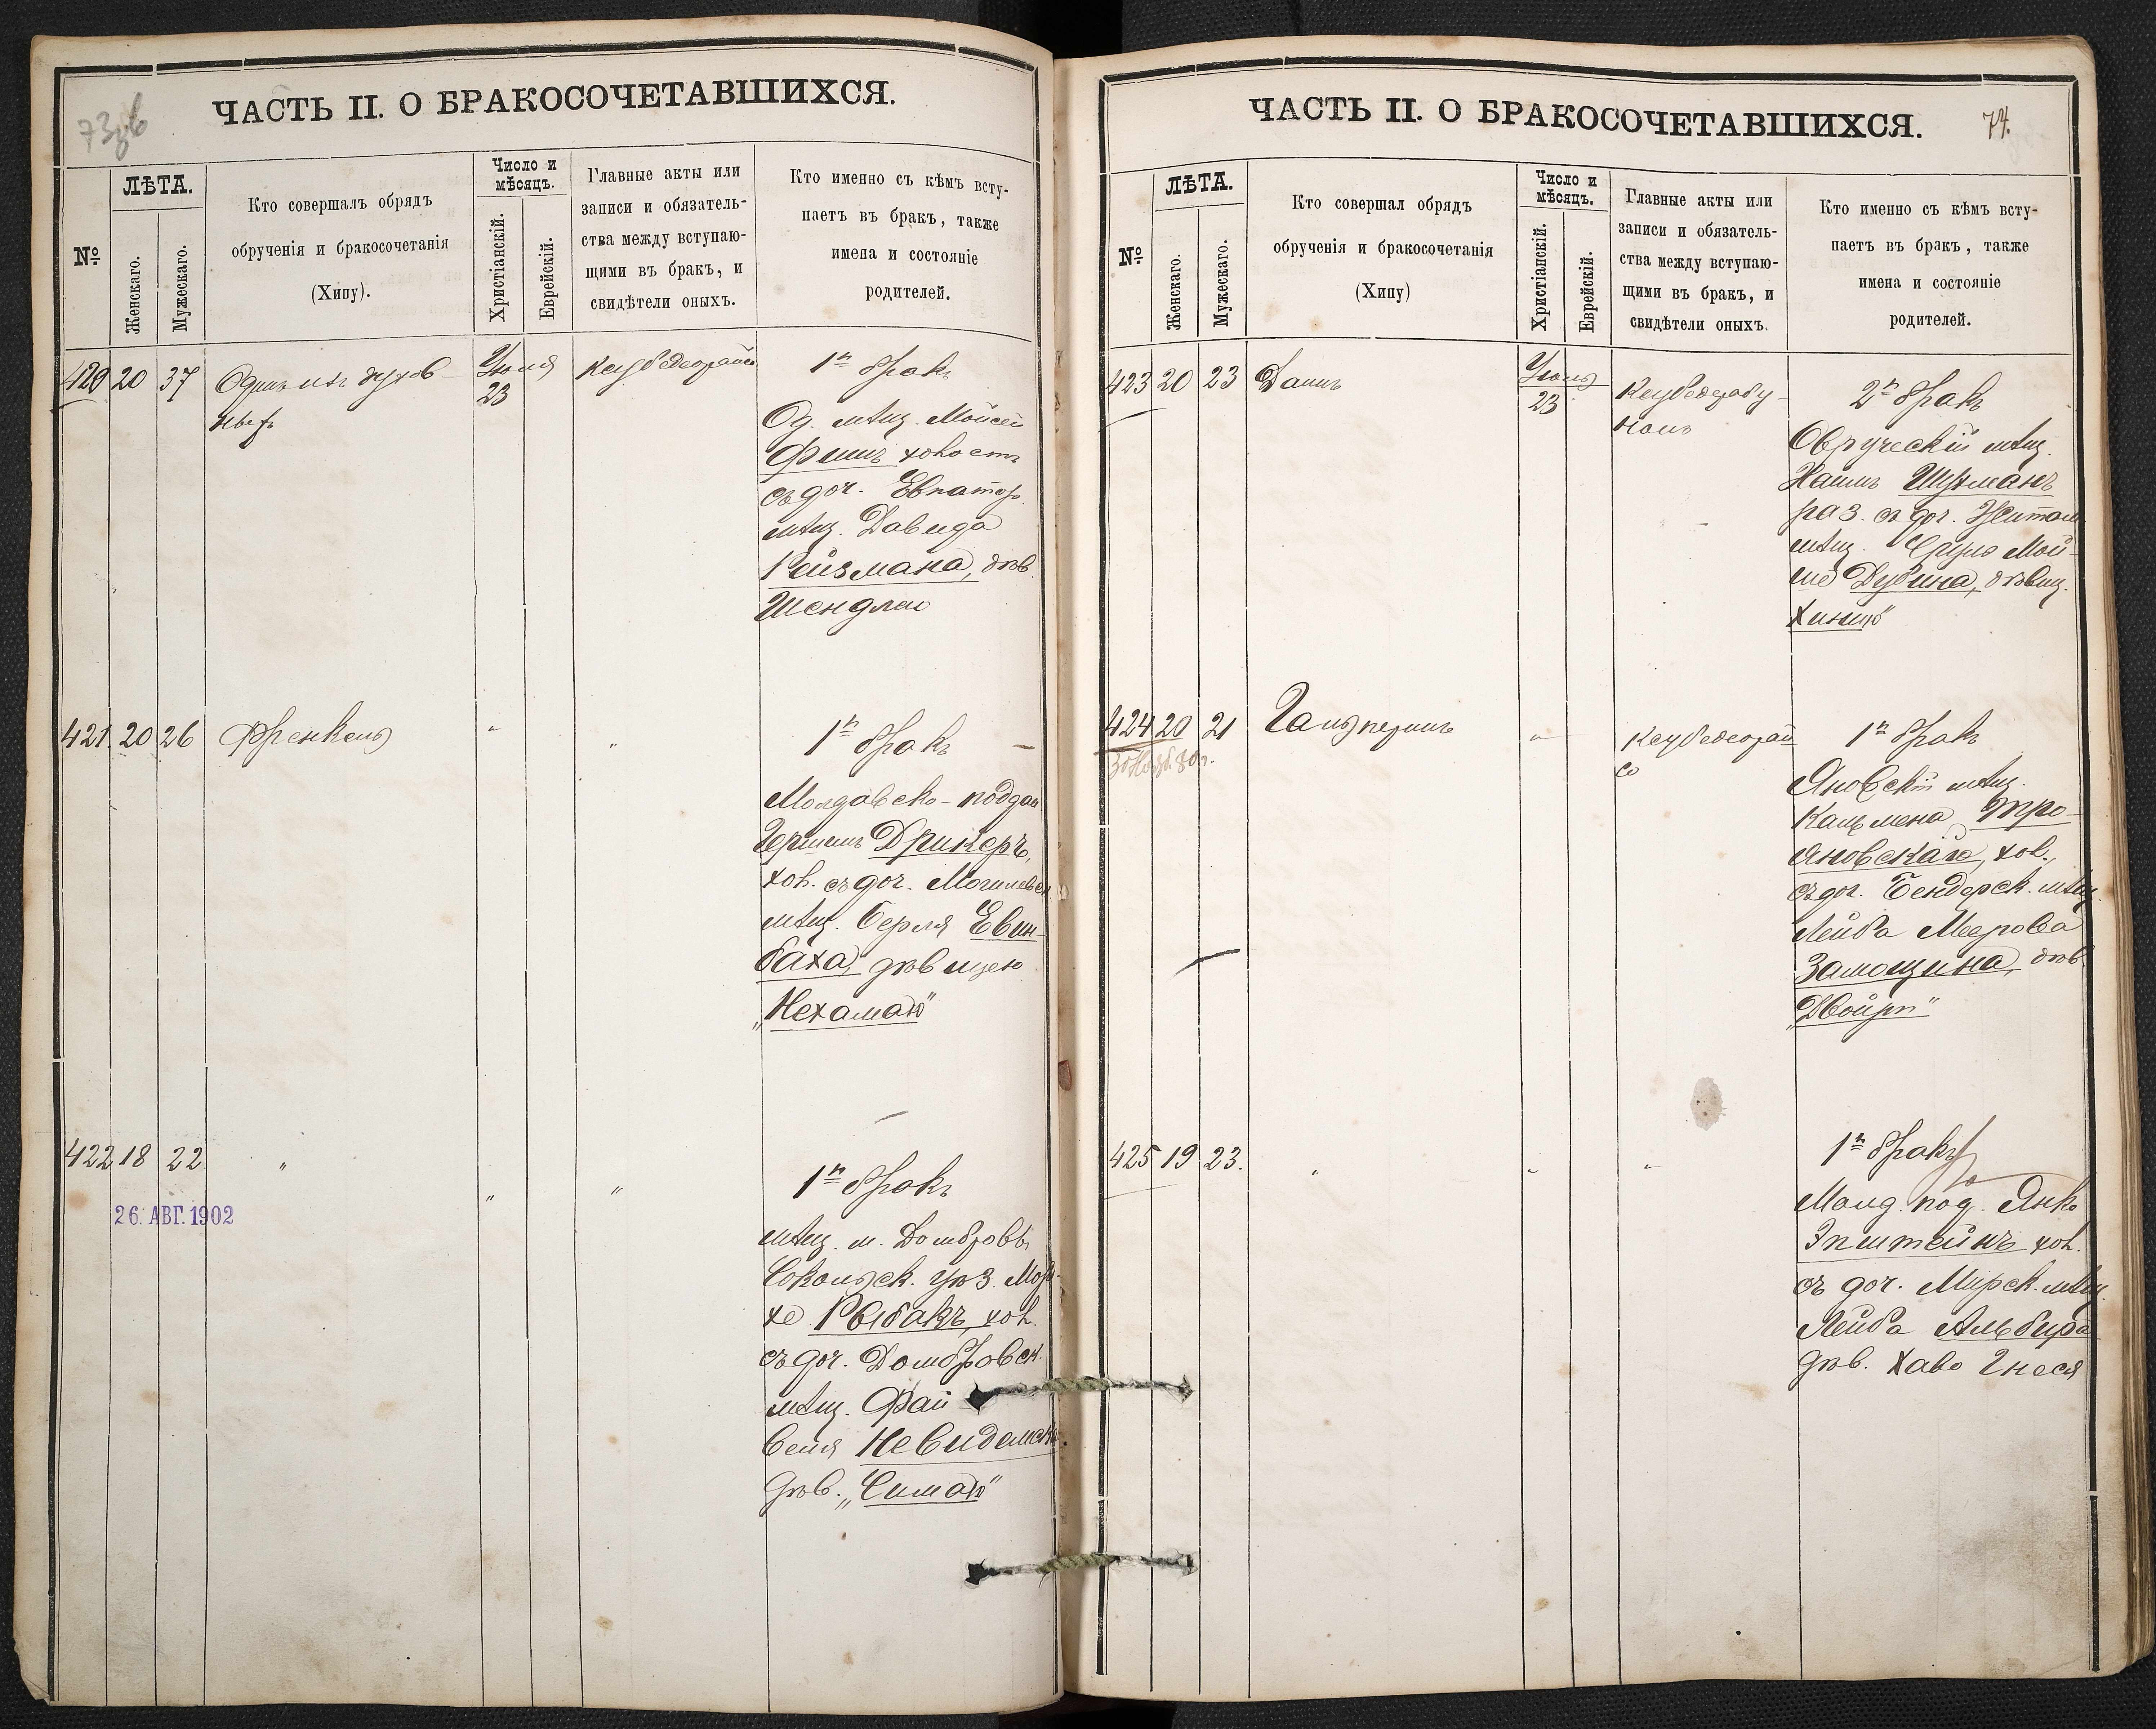 73 об
ЧАСТЬ II. О БРАКОСОЧЕТАВШИХСЯ.
№
ЛѢТА.
Женскаго.
Мужескаго.
Кто совершалъ обрядъ
обрученія и бракосочетанія
(Хипу).
Число и
мѣсяцъ.
Христіанскій.
Еврейскій.
Главные акты или
записи и обязатель-
ства между вступаю-
щими въ бракъ, и
свидѣтели оныхъ.
Кто именно съ кѣмъ всту-
паетъ въ бракъ, также
имена и состояніе
родителей.
420 20 37
Одинъ изъ духов-
ныхъ
Іюня
23
1й бракъ
Од. мѣщ. Мойсей
Фишъ холостъ
съ доч. Евпатор.
мѣщ. Давида
Рейзмана, дѣв.
Шендлею
421 20 26
Френкель
"
"
1й бракъ
Молдавско-поддан.
Гершель Дрикеръ,
хол. съ доч. Могилевск.
мѣщ. Берля Евин-
баха, дѣвицею
„Нехамаю"
422 18 22
"
"
"
26. АВГ. 1902
1й бракъ
мѣщ. м. Домбровы
Сокольск. уѣз. Морд-
хе Рыбакъ, хол.
съ доч. Домбровск.
мѣщ. Фай-
веля Невидомск.
дѣв. „Симаю"
ЧАСТЬ II. О БРАКОСОЧЕТАВШИХСЯ.
74.
№
ЛѢТА.
Женскаго.
Мужескаго.
Кто совершал обрядъ
обрученія и бракосочетанія
(Хипу)
Число и
мѣсяцъ.
Христіанскій.
Еврейскій.
Главные акты или
записи и обязатель-
ства между вступаю-
щими въ бракъ, и
свидѣтели оныхъ.
Кто именно съ кѣмъ всту-
паетъ въ бракъ, также
имена и состояніе
родителей.
423 20 23
Даинъ
Іюня
23
2й бракъ
Овручскій мѣщ.
Хаимъ Шухманъ
раз. съ доч. Житом.
мѣщ. Сруля Мой-
ше Дубина, дѣвиц.
Хиною
424 20 21
Гальперинъ
"
1й бракъ
Яновскій мѣщ.
Кальмена Тро-
яновскаго, хол.,
съ доч. Бендерск. мѣщ.
Лейба Меерова
Замощина, дѣв.
„Двойрп"
425 19 23.
"
"
"
1й бракъ
Молд. под. Янко
Эпштейнъ хол.
съ доч. Мирск. мѣщ.
Лейба Альбира
дѣв. Хаво Гнеся